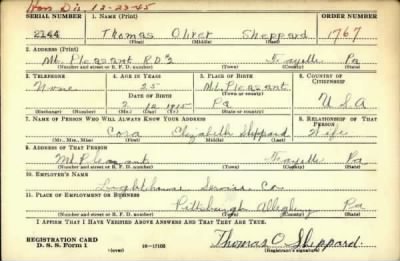 Hon Dis. 12-22-45
SERIAL NUMBER 1. NAME (Print) ORDER NUMBER
2144 Thomas Oliver Sheppard 1767
(First) (Middle) (Last)
2. ADDRESS (Print)
Mt. Pleasant R.D.#2 Fayette Pa
(Number and street or R. F. D. number) (Town) (County) (State)
3. TELEPHONE 4. AGE IN YEARS 5. PLACE OF BIRTH 6. COUNTRY OF CITIZENSHIP
None 25 Mt. Pleasant
DATE OF BIRTH (Town or county)
2 12 1915 Pa U S A
(Exchange) (Number) (Mo.) (Day) (Yr.) (State or country)
7. NAME OF PERSON WHO WILL ALWAYS KNOW YOUR ADDRESS 8. RELATIONSHIP OF THAT PERSON
Cora Elizabeth Sheppard Wife
(Mr., Mrs., Miss) (First) (Middle) (Last)
9. ADDRESS OF THAT PERSON
Mt Pleasant Fayette Pa
(Number and street or R. F. D. number) (Town) (County) (State)
10. EMPLOYER'S NAME
Service Co
11. PLACE OF EMPLOYMENT OR BUSINESS
Pittsburgh Allegheny Pa
(Number and street or R. F. D. number) (Town) (County) (State)
I AFFIRM THAT I HAVE VERIFIED ABOVE ANSWERS AND THAT THEY ARE TRUE.
REGISTRATION CARD
D. S. S. Form 1 (over) 16-17105 Thomas O Sheppard.
(Registrant's signature)